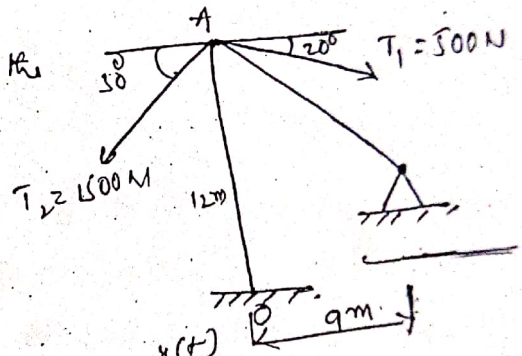 A
the
50°
20°
T₁ = 500 N
T₂ = 1500 N
12m
O
9m.
x(+)